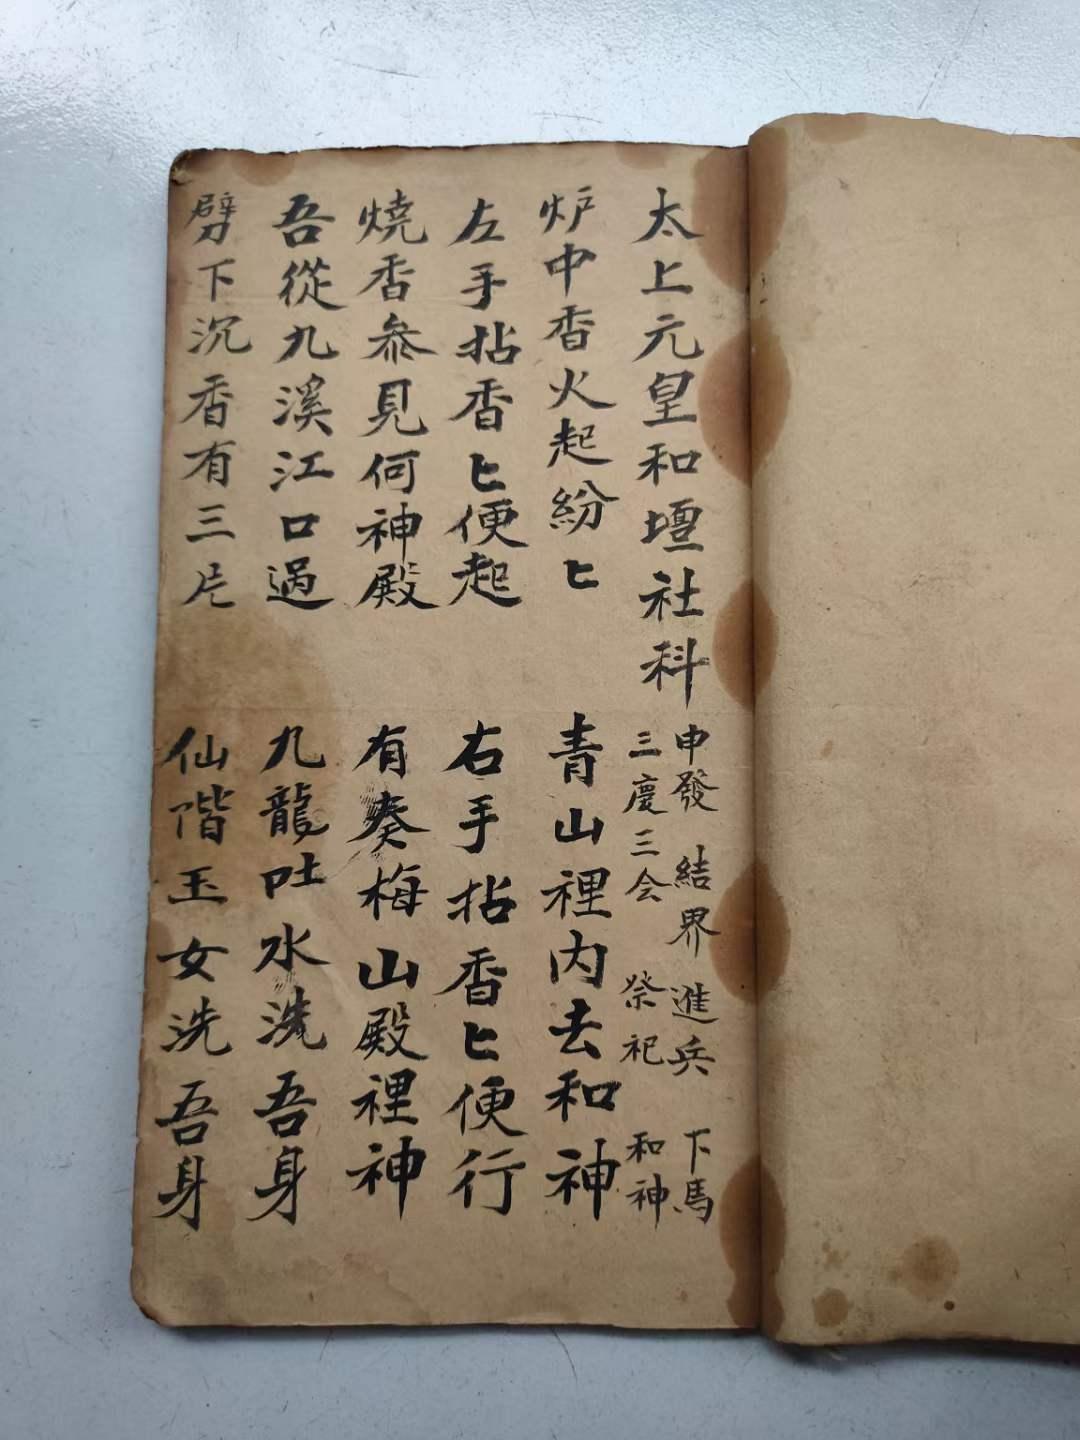 太上元皇和壇社科
申發 結界 進兵 下馬
三慶三会 祭祀 和神
炉中香火起紛匕 青山裡内去和神
左手拈香匕便起 右手拈香匕便行
燒香參見何神殿 有奏梅山殿裡神
吾從九溪江口過 九龍吐水洗吾身
劈下沉香有三片 仙階玉女洗吾身